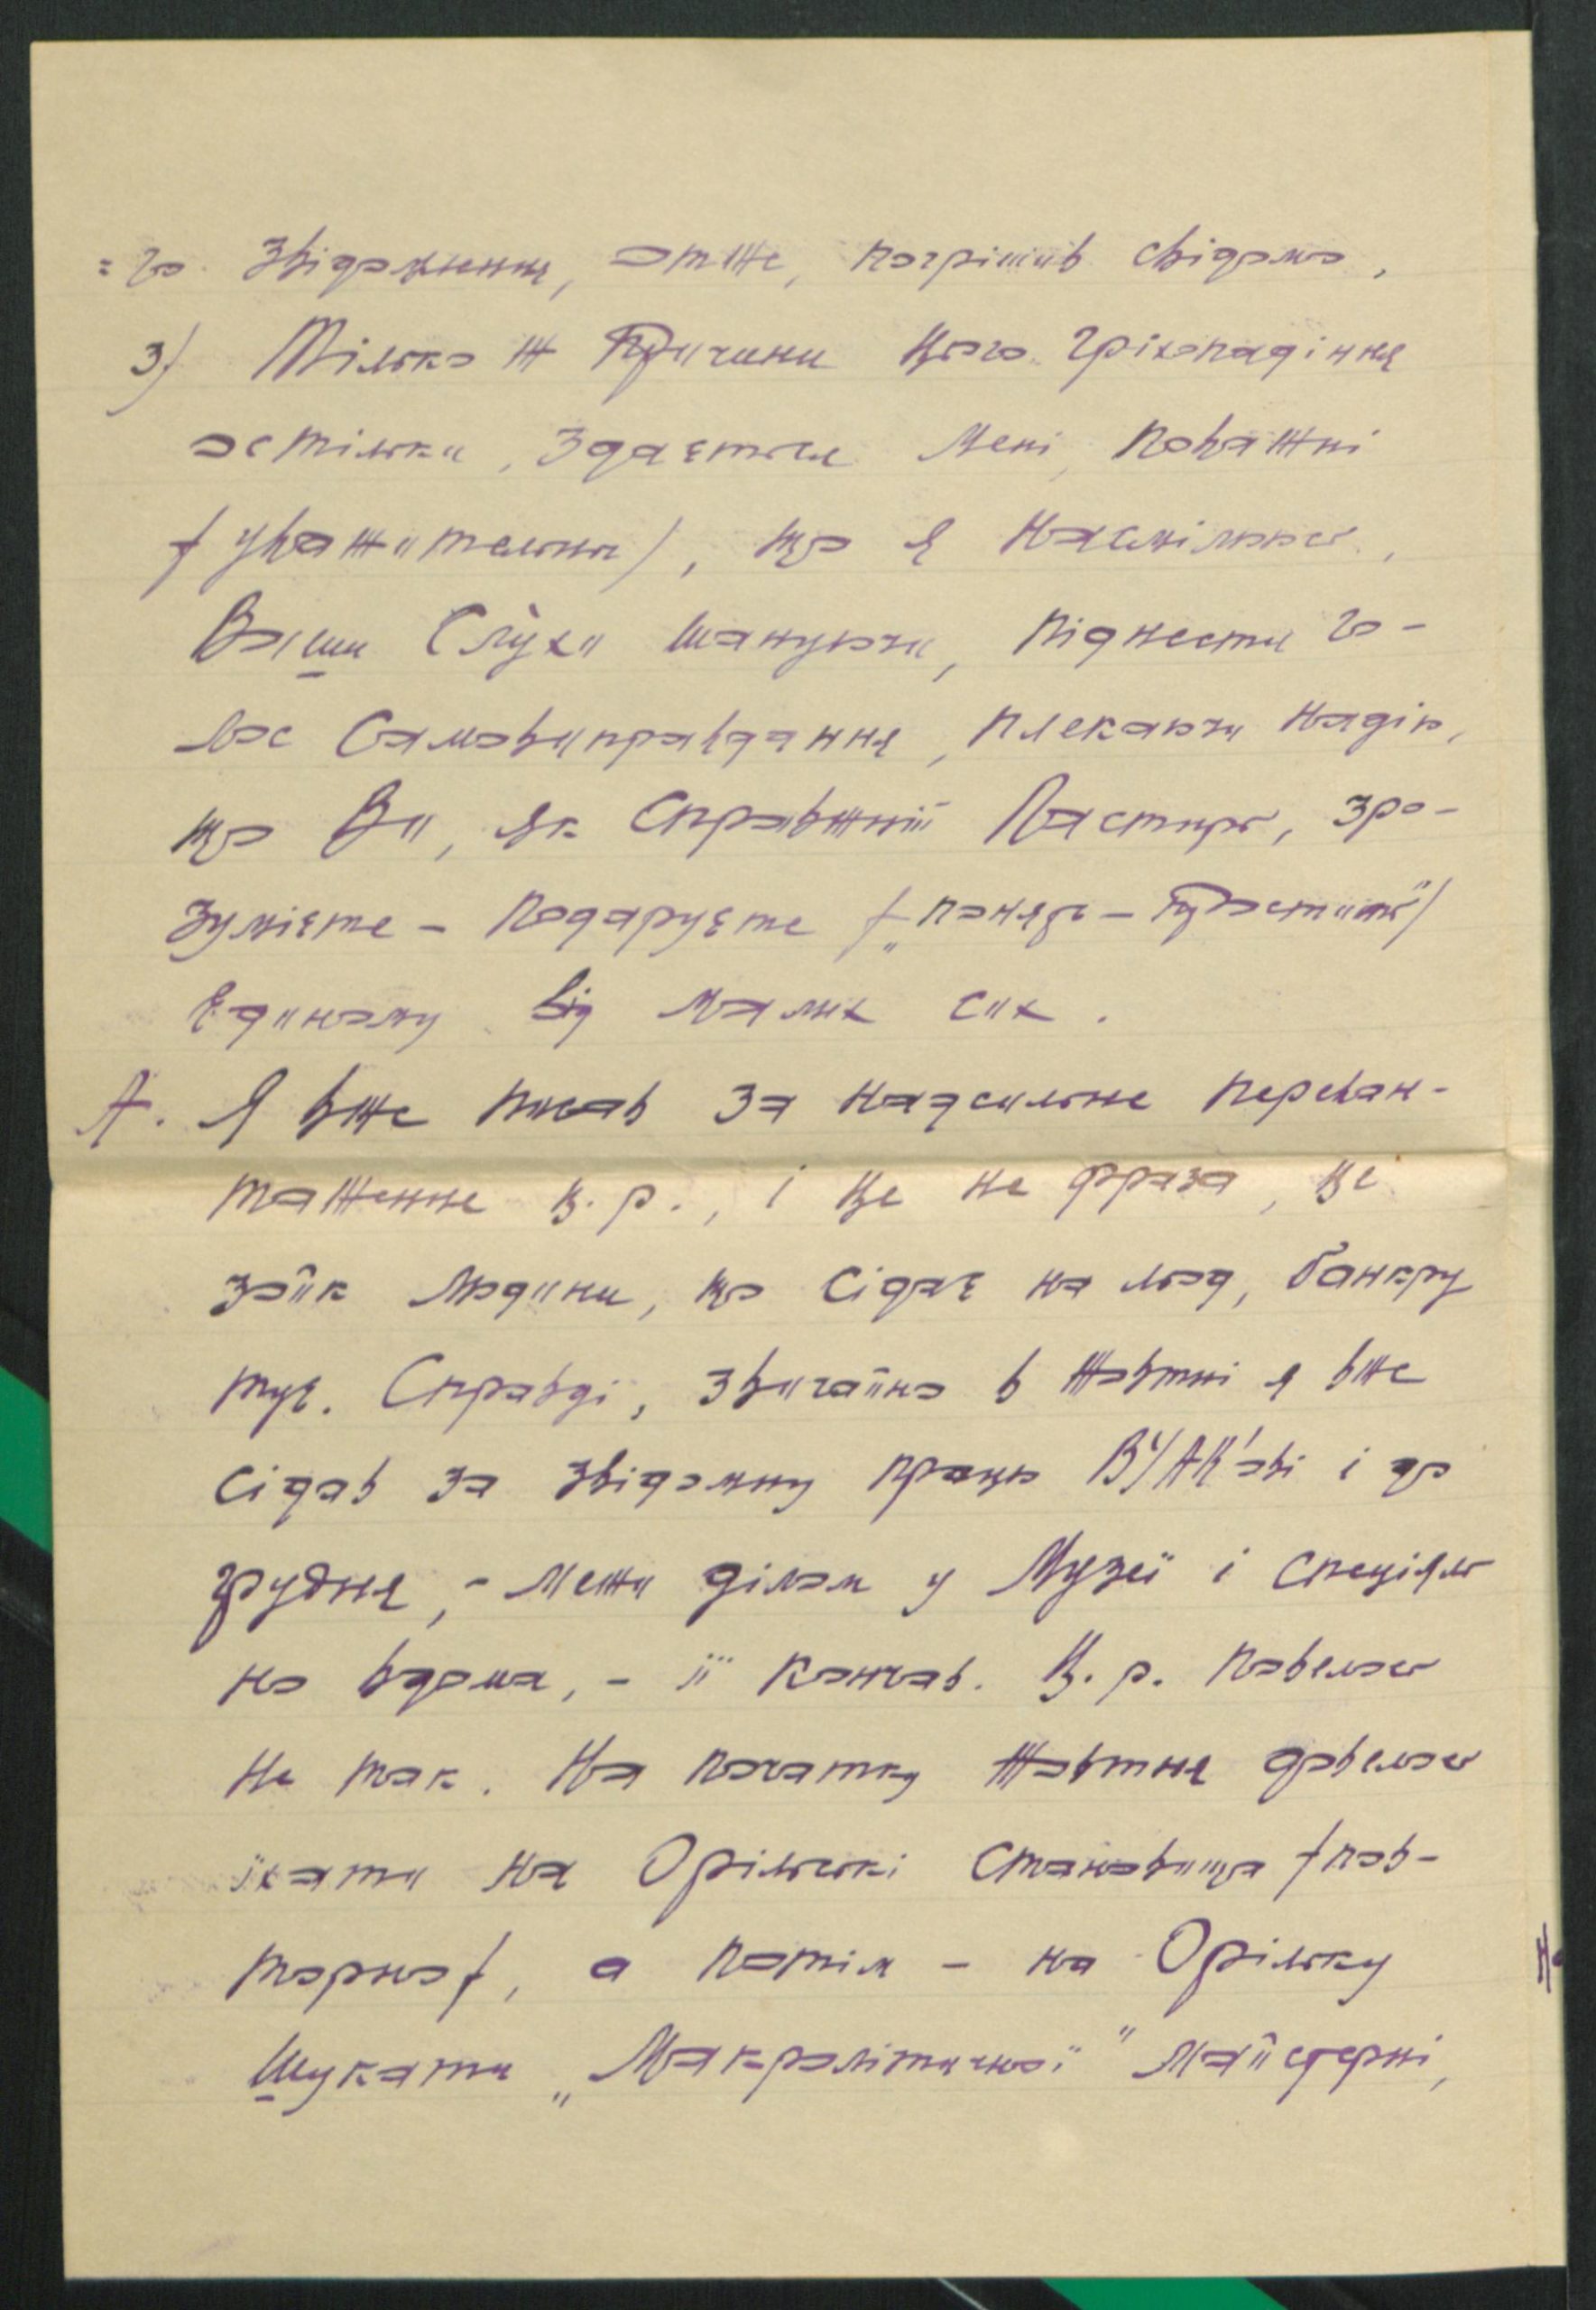 =го звідомлення, отже, погрішив свідомо.
3/ Тілько ж причини цього гріхопадіння
остільки, здається мені, поважні
/уважительни/, що я насмілююсь,
Ваши Слу́хи шануючи, піднести го-
лос самовиправдання, плекаючи надію,
що Ви, як справжній Пастирь, зро-
зумієте – подаруєте /„поняць – простить"/
Єдиному від малих сих.
А. Я вже писав за надсильне переван-
таження ц.р., і це не фраза, це
зойк людини, що сідає на лід, банкру
тує. Справді, звичайно в жовтні я вже
сідав за звідомну працю ВУАК'ові і до
грудня, – межи ділом у Музеї і спеціяль
но вдома, – її кончав. Ц.р. повелось
не так. На початку жовтня довелось
їхати на Орільські становища /пов-
торно/, а потім – на Орільку
шукати „Макролітичної" майстерні,
Но